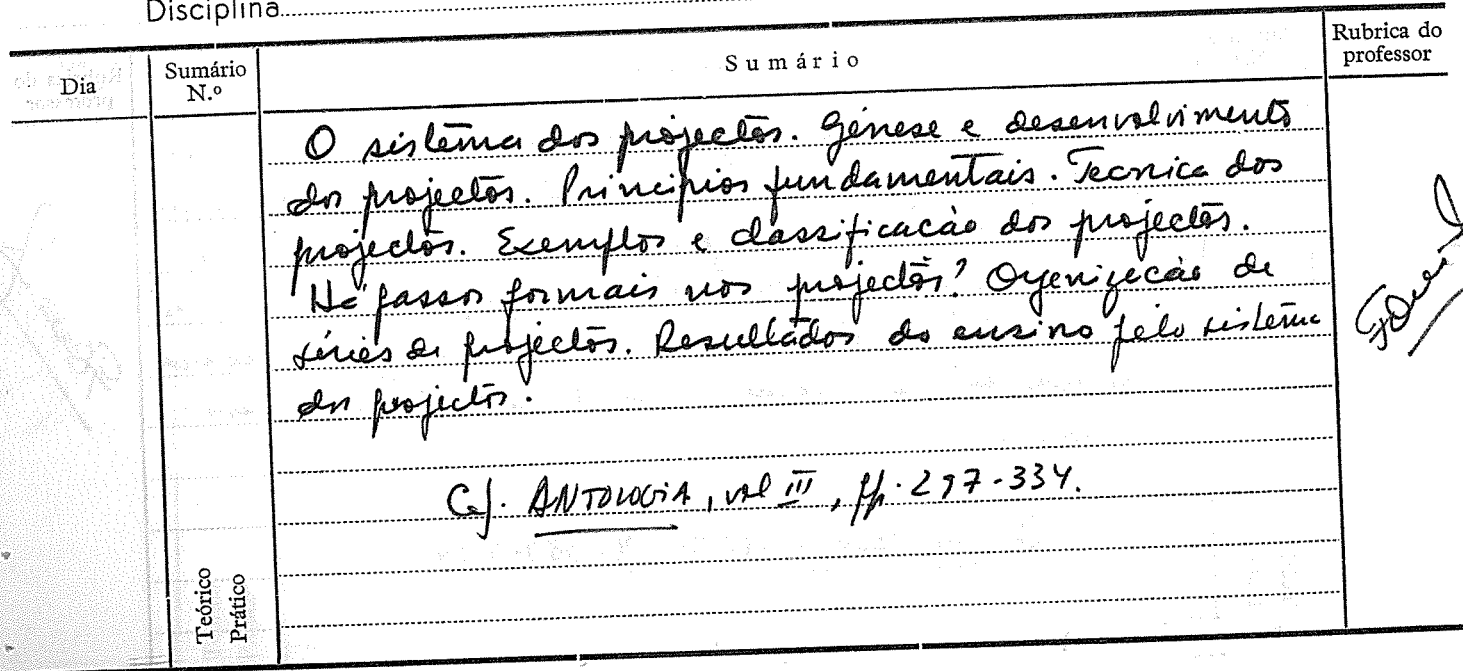 Disciplina
Dia
Sumário N.º
Sumário
Rubrica do professor
O sistema dos projectos. Génese e desenvolvimento
dos projectos. Princípios fundamentais. Tecnica dos
projectos. Exemplos e classificacão dos projectos.
Há passos formais nos projectos? Organizacão de
séries de projectos. Resultados do ensino pelo sistema
dos projectos.
Cf. ANTOLOGIA, vol III, pp. 297-334.
Teórico
Prático